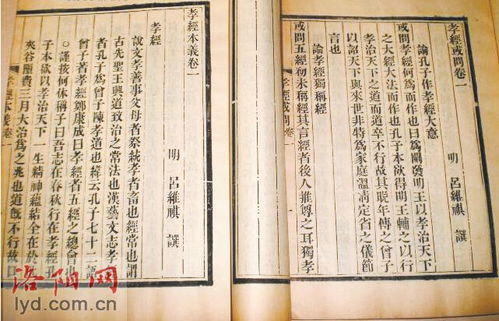 孝經或問卷一
明 呂維祺 譔
論孔子作孝經大意
或問孝經何爲而作也曰爲闡發明王以孝治天下
之大經大法而作也孔子本欲得明王輔之以行
孝治天下之道而道卒不行故其晚年傳之曾子
以詔天下與來世非特爲家庭溫凊定省之儀節
言也
論孝經獨稱經
或問五經初未稱經其言經者後人推尊之耳獨孝
孝經或問卷一
孝經本義卷一
明 呂維祺 譔
孝經
說文孝善事父母者祭統孝者畜也經常也謂
古先聖王與道致治之常法也漢藝文志孝
者孔子爲曾子陳孝道也緯云孔子七十二語
曾子著孝經鄭康成曰孝經者五經之總會
○謹按何休稱子曰吾志在春秋行在孝經孔
子本欲以孝治天下一生精神結全在於
夾谷隳費三月大治爲之兆也道旣不行故口
孝經本義卷一
洛阳网
lyd.com.cn